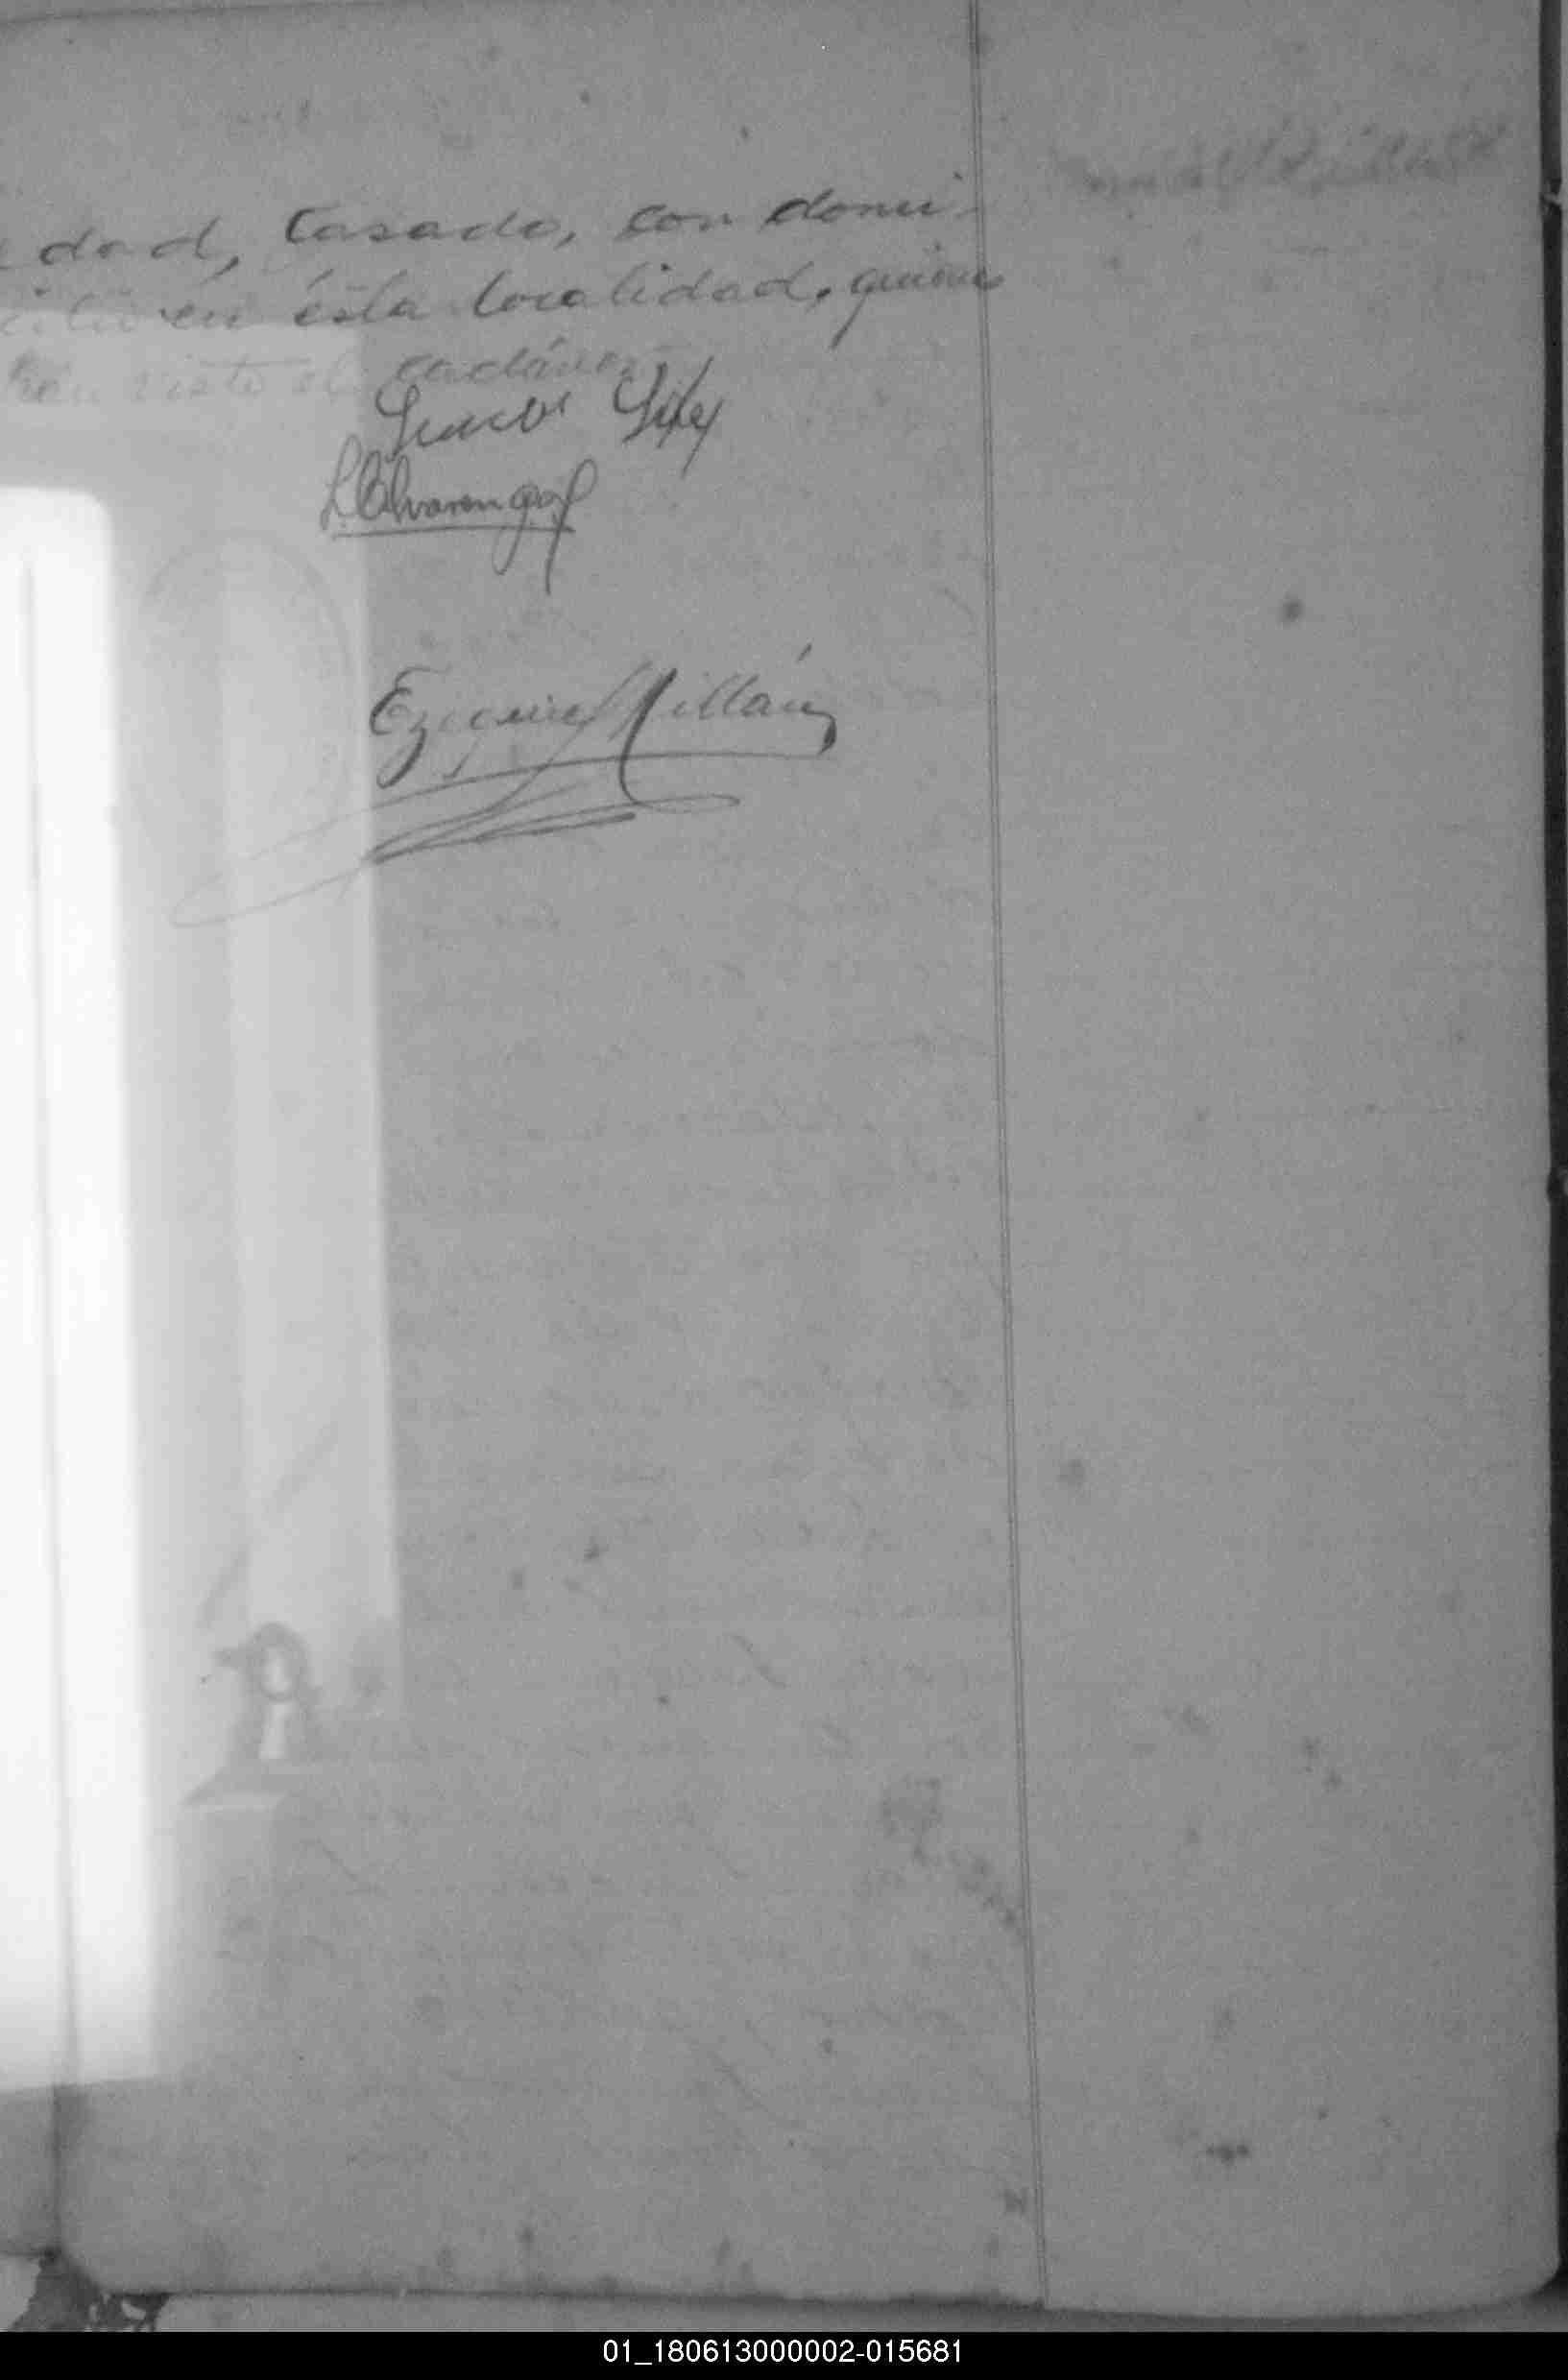 dad, Casado, con domi-
cilio en ésta localidad, quienes
han visto el cadáver.
L. Alvarenga
Ezequiel Millán
01_180613000002-015681